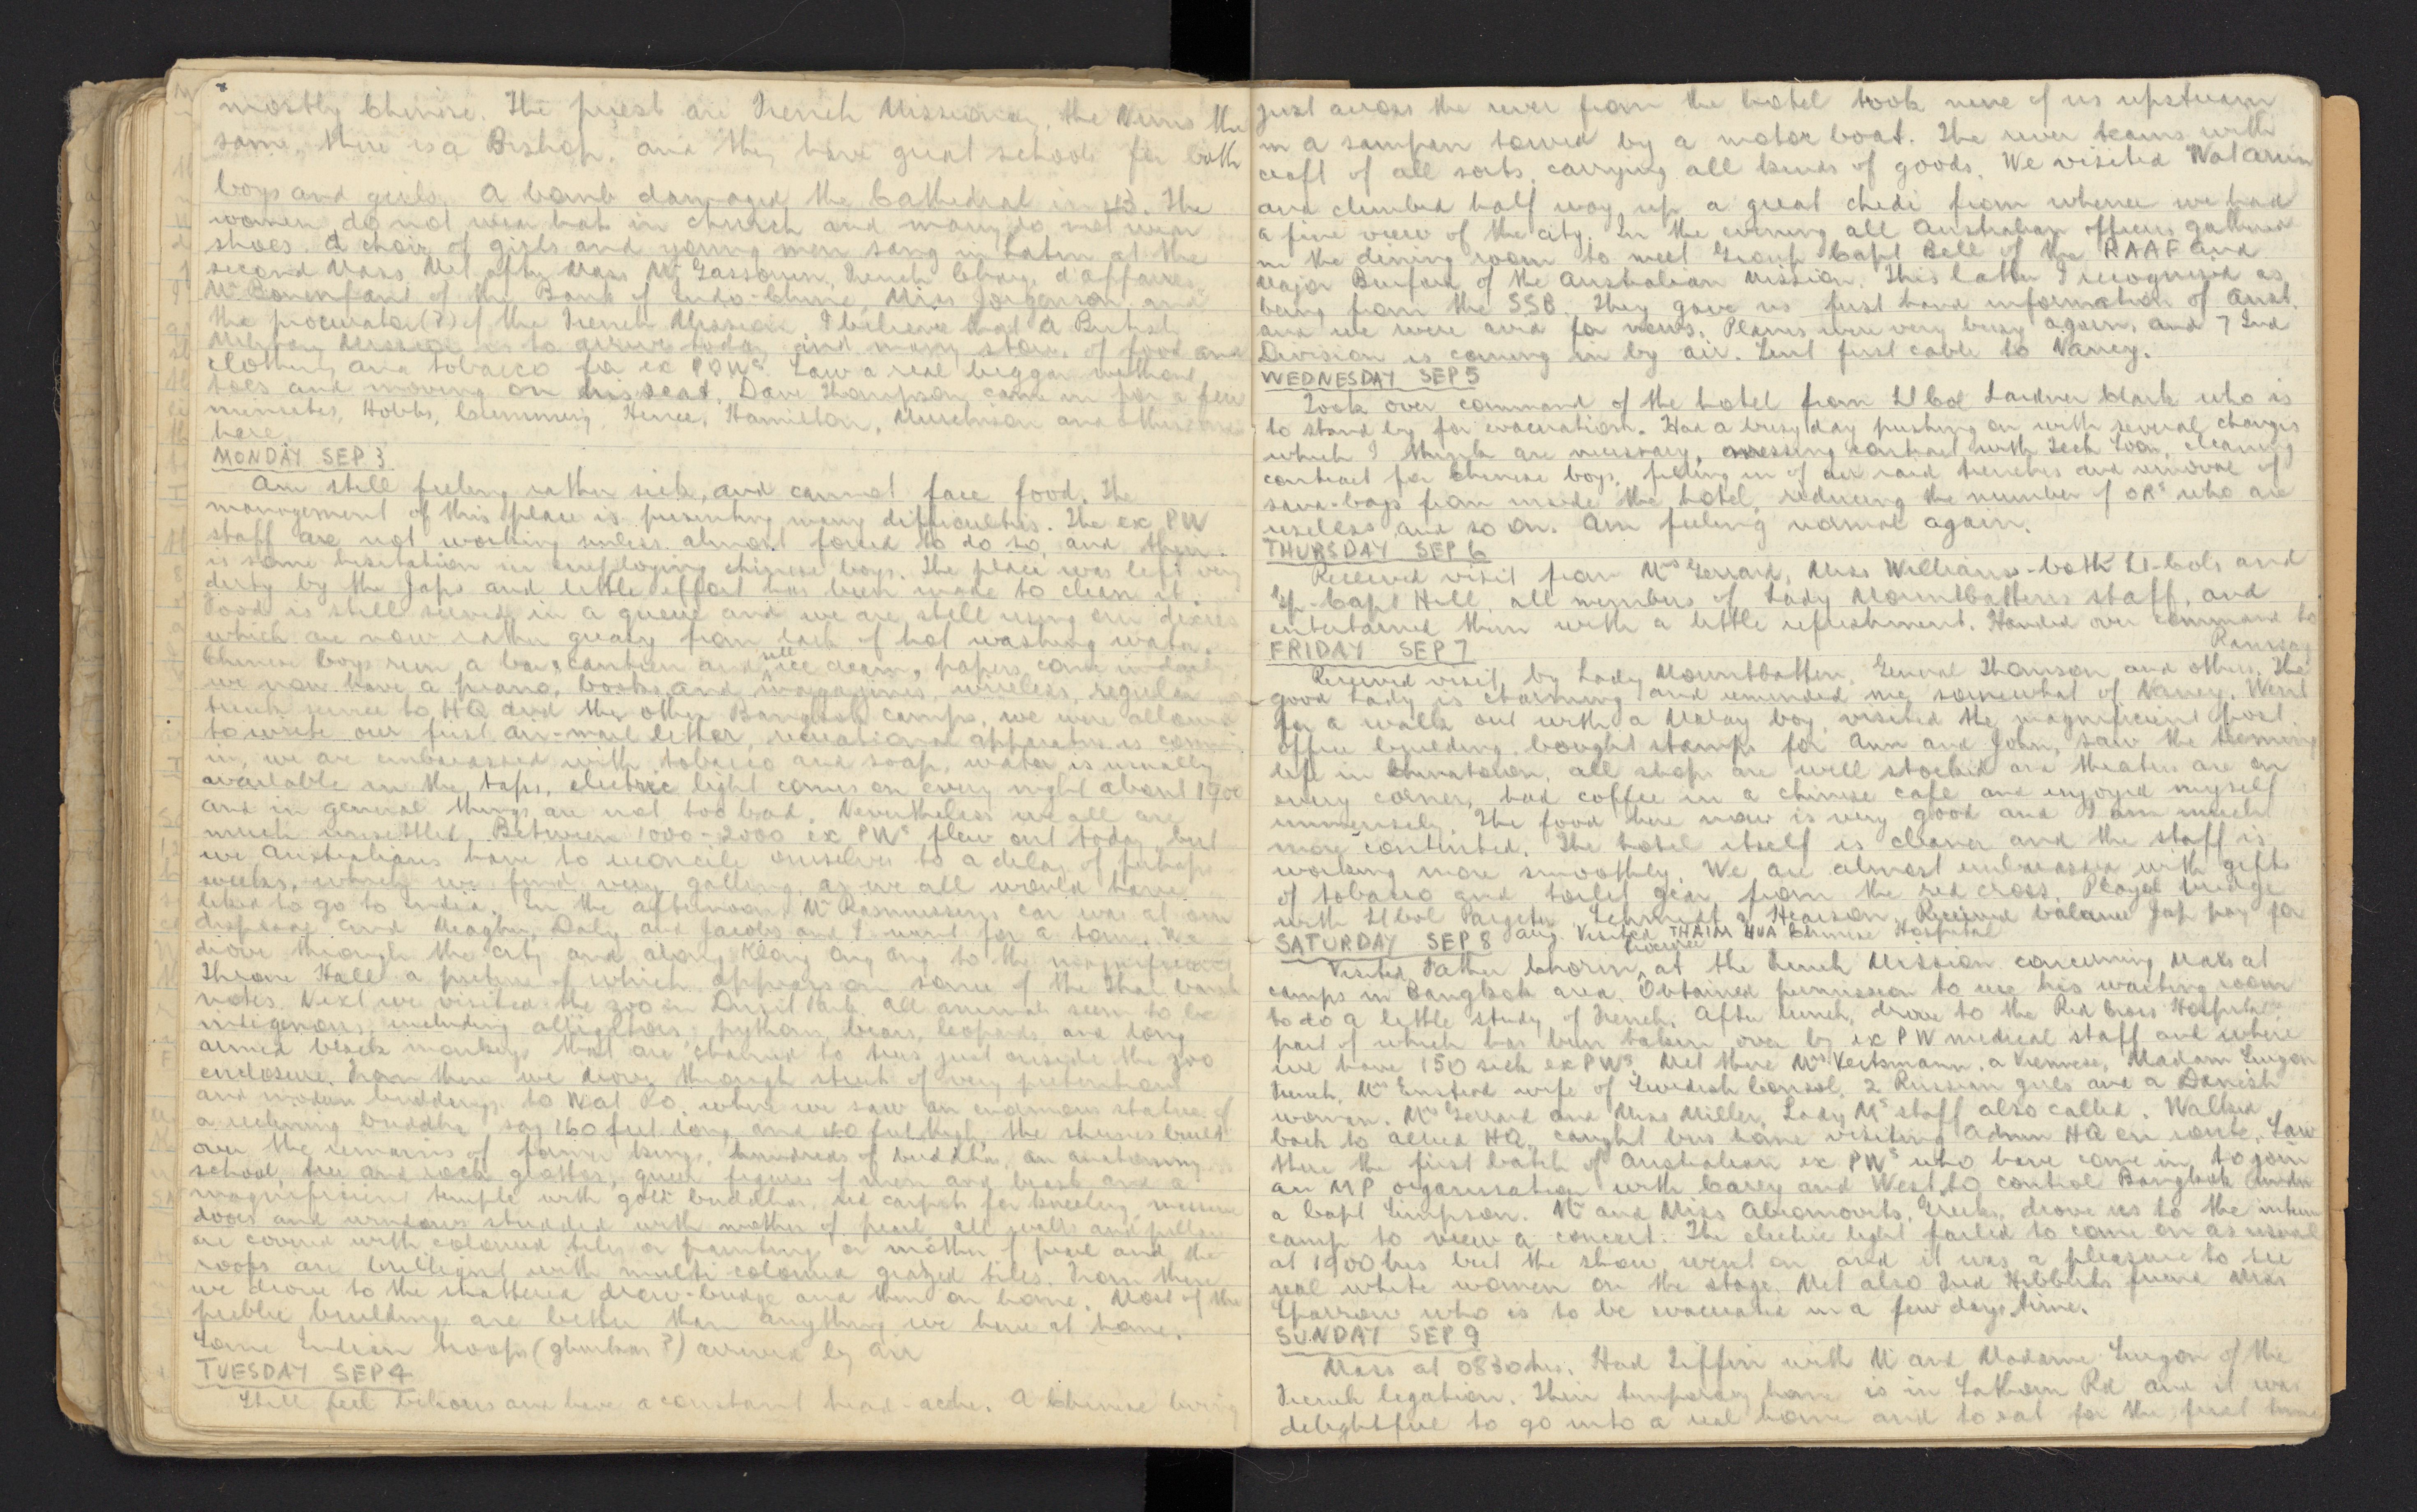 mostly Chinese. The priest are French Missionary, the Nuns the
same, there is a Bishop, and they have great schools for both
boys and girls. A bomb damaged the Cathedral in 43. The
women do not wear hats in church and many do not wear
shoes. A choir of girls and young men sang in Latin at the
second Mass. Met after Mass Mr French Charge d'affaires
Mr Bonenfant of the Bank of Indo-Chine, Miss Jorgenson and
the procurator(?) of the French Mission. I believe that a British
Military Mission is to arrive today and many stores of food and
clothing and tobacco for ex POWs. Saw a real beggar without
toes and moving on his seat. Dave Thompson came in for a few
minutes, Hobbs, Cumming, Hence, Hamilton, Murchison and others are
here.
MONDAY SEP 3
Am still feeling rather sick, and cannot face food. The
management of this place is presenting many difficulties. The ex PW
staff are not working unless almost forced to do so, and there
is some hesitation in employing chinese boys. The place was left very
dirty by the Japs and little effort has been made to clean it.
Food is still served in a queue and we are still using our dixies
which are now rather greasy from lack of hot washing water.
Chinese boys run a bar, canteen and sell ice cream, papers come in daily
we now have a piano, books, and magazines, wireless, regular
truck service to HQ and the other Bangkok camps, we were allowed
to write our first air-mail letter, recreational apparatus is coming
in, we are embarrassed with tobacco and soap, water is usually
available in the taps, electric light comes on every night about 1900
and in general things are not too bad. Nevertheless we all are
much unsettled. Between 1000-2000 ex PWs flew out today but
we Australians have to reconcile ourselves to a delay of perhaps
weeks, which we find very galling, as we all would have
liked to go to India. In the afternoon Mr Rasmussens car was at our
disposal and Meagher, Daly and Jacobs and I went for a tour. We
drove through the city and along Klong Ong Ang to the magnificent
Throne Hall a picture of which appears on some of the Thai
notes. Next we visited the zoo in Dusit Park. All animals seem to be
indigenous, including alligators, python, bears, leopards and long
armed black monkeys that are chained to trees just outside the zoo
enclosure. From there we drove through street of very pretentious
and modern buildings to Wat Po, where we saw an enormous statue of
a reclining buddha, say 160 feet long and 40 feet high, the shrines built
over the remains of former kings, hundreds of buddhas, an
school, tree and rock grottos, queer figures of men and beast and a
magnificent temple with gold buddha, red carpet for kneeling, massive
doors and windows studded with mother of pearl, all walls and pillars
are covered with coloured tiles or paintings or mother of pearl and the
roofs are brilliant with multi coloured glazed tiles. From there
we drove to the shattered draw-bridge and then on home. Most of the
public buildings are better than anything we have at home.
Some Indian troops (ghurkas?) arrived by air
TUESDAY SEP 4
Still feel bilious and have a constant head-ache. A Chinese living
just across the river from the hotel took nine of us upstream
in a sampan towed by a motor boat. The river teams with
craft of all sorts, carrying all kinds of goods. We visited Wat Arun
and climbed half way up a great chedi from whence we had
a fine view of the city. In the evening all Australian officers gathered
in the dining room to meet Group Capt Bell of the RAAF and
Major of the Australian Mission. This latter I recognised as
being from the SSB. They gave us first hand information of Aust.
and we were avid for news. Planes were very busy again, and 7 Ind
Division is coming in by air. Sent first cable to Nancy.
WEDNESDAY SEP 5
Took over command of the hotel from Lt Col Lardner Clark who is
to stand by for evacuation. Had a busy day pushing on with several changes
which I think are necessary, messing contract with Seck Loon, cleaning
contract for Chinese boys, filling in of air raid trenches and removal of
sand-bags from inside the hotel, reducing the number of ORs who are
useless and so on. Am feeling normal again.
THURSDAY SEP 6
Received visit from Mrs Gerrard, Miss Williams - both Lt-Cols and
Gp-Capt Hill, all members of Lady Mountbattens staff, and
entertained them with a little refreshment. Handed over command to
Ramsay
FRIDAY SEP 7
Received visit by Lady Mountbatten, General Thomson and others. The
good Lady is charming and reminded me somewhat of Nancy. Went
for a walk out with a Malay boy, visited the magnificient post
office building, bought stamps for Ann and John, saw the teeming
life in Chinatown, all shops are well stocked and theatres are on
every corner, had coffee in a chinese cafe and enjoyed myself
immensely. The food here now is very good and I am much
more contented. The hotel itself is cleaner and the staff is
working more smoothly. We are almost embarrassed with gifts
of tobacco and toilet gear from the red cross. Played bridge
with Lt Col Pargeter, Schmidt & Hearson. Received balance Jap pay for
Aug. Visited THAIM HUA Chinese Hospital
SATURDAY SEP 8
Visited Father Chorin at the French Mission concerning Mass at
camps in Bangkok area. Obtained permission to use his waiting room
to do a little study of French. After lunch, drove to the Red Cross Hospital
part of which has been taken over by ex PW medical staff and where
we have 150 sick ex PWs. Met there Mrs, a Viennese, Madam Surgon
French, Mrs wife of Swedish Consol, 2 Russian girls and a Danish
woman. Mrs Gerrard and Miss Miller, Lady Ms staff also called. Walked
back to Allied HQ, caught bus home visiting Admin HQ en route. Saw
there the first batch of Australian ex PWs who have come in to join
an MP organisation with Carey and West to control Bangkok under
a Capt Simpson. Mr and Miss Abramovits, Greeks, drove us to the intern
camp to view a concert. The electric light failed to come on as usual
at 1900 hrs but the show went on and it was a pleasure to see
real white women on the stage. Met also Fred Hibberds friend Miss
Sparrow who is to be evacuated in a few days time.
SUNDAY SEP 9
Mass at 0830 hrs. Had Tiffin with M and Madame Surgon of the
French legation. Their temporary home is in Sathorn Rd and it was
delightful to go into a real home and to eat for the first time